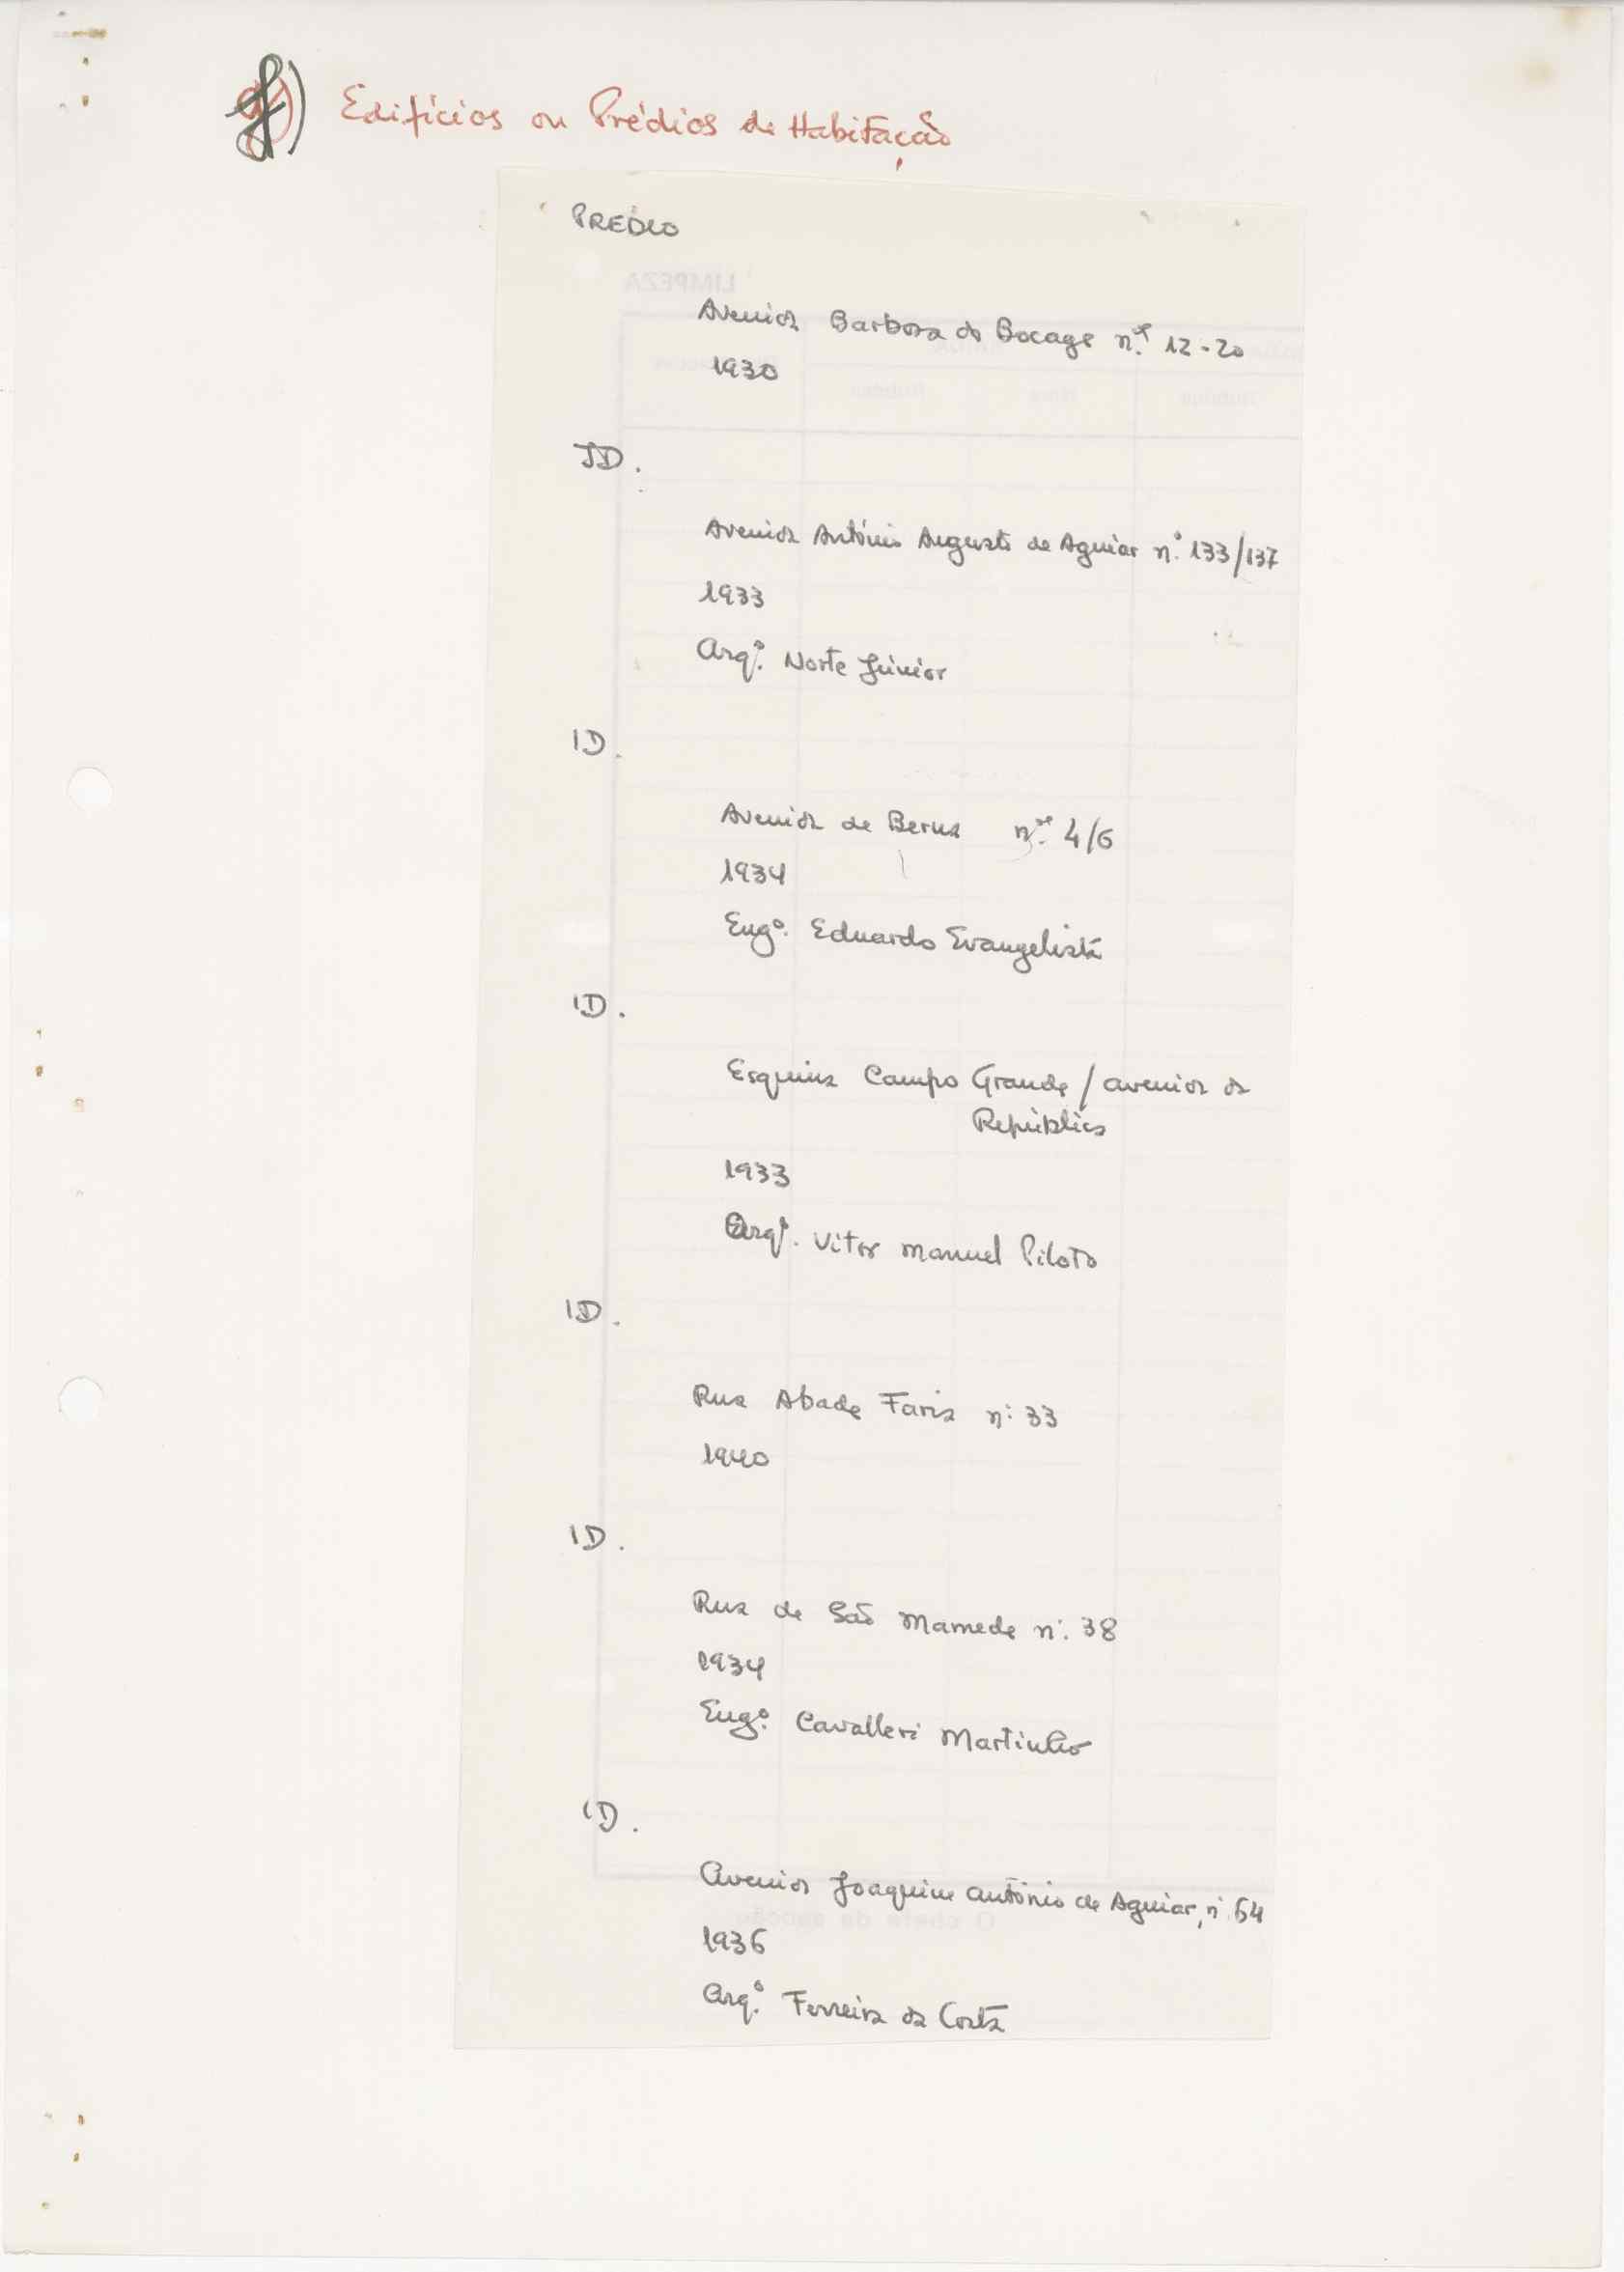 f) Edifícios ou Prédios de Habitação
PRÉDIO
Avenida Barbosa do Bocage n.os 12-20
1930
ID.
Avenida António Augusto de Aguiar n.º 133/137
1933
Arqº. Norte Júnior
ID.
Avenida de Berna n.os 4/6
1934
Engº. Eduardo Evangelista
ID.
Esquina Campo Grande / avenida da
República
1933
Arqº. Vitor Manuel Piloto
ID.
Rua Abade Faria nº 33
1940
ID.
Rua de São Mamede nº. 38
1934
Engº. Cavalleri Martinho
ID.
Avenida Joaquim António de Aguiar, nº 64
1936
Arqº. Ferreira da Costa